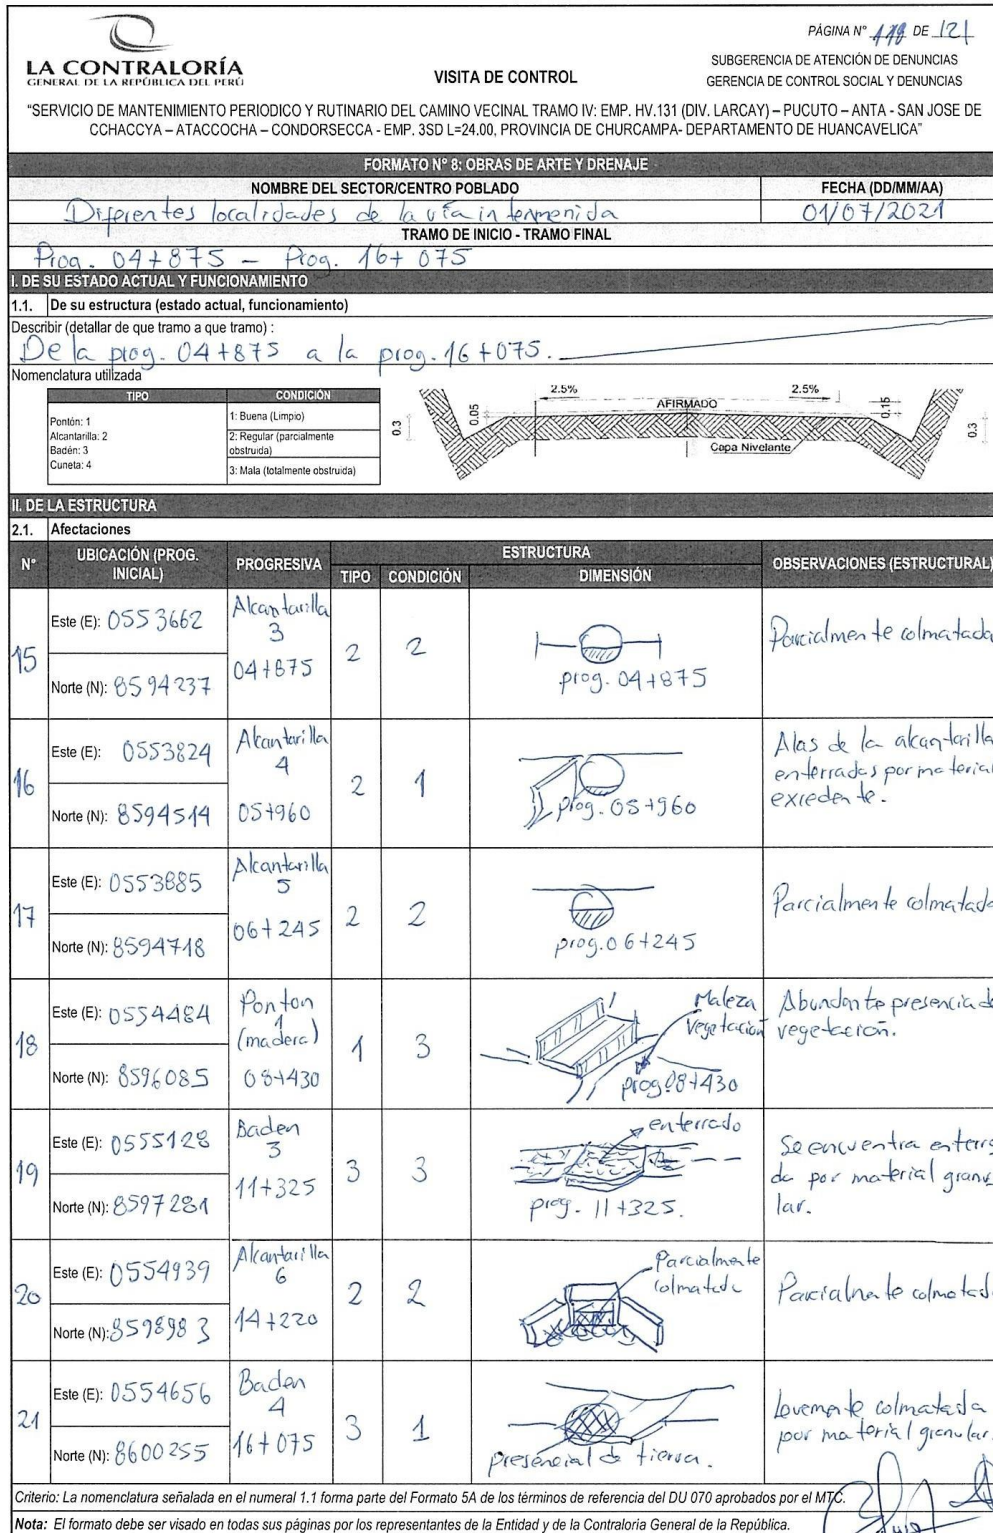 PÁGINA N° 118 DE 121
LA CONTRALORÍA
GENERAL DE LA REPÚBLICA DEL PERÚ
VISITA DE CONTROL
SUBGERENCIA DE ATENCIÓN DE DENUNCIAS
GERENCIA DE CONTROL SOCIAL Y DENUNCIAS
"SERVICIO DE MANTENIMIENTO PERIODICO Y RUTINARIO DEL CAMINO VECINAL TRAMO IV: EMP. HV.131 (DIV. LARCAY) – PUCUTO – ANTA - SAN JOSE DE
CCHACCYA – ATACCOCHA – CONDORSECCA - EMP. 3SD L=24.00, PROVINCIA DE CHURCAMPA- DEPARTAMENTO DE HUANCAVELICA"
FORMATO N° 8: OBRAS DE ARTE Y DRENAJE
NOMBRE DEL SECTOR/CENTRO POBLADO
FECHA (DD/MM/AA)
Diferentes localidades de la vía intermenida
01/07/2021
TRAMO DE INICIO - TRAMO FINAL
Prog. 04+875 – Prog. 16+075
I. DE SU ESTADO ACTUAL Y FUNCIONAMIENTO
1.1. De su estructura (estado actual, funcionamiento)
Describir (detallar de que tramo a que tramo) :
De la prog. 04+875 a la prog. 16+075.
Nomenclatura utilizada
TIPO CONDICIÓN
Pontón: 1
Alcantarilla: 2
Badén: 3
Cuneta: 4
1: Buena (Limpio)
2: Regular (parcialmente
obstruida)
3: Mala (totalmente obstruida)
2.5% 2.5%
AFIRMADO
0.3 0.05 0.15 0.3
Capa Nivelante
II. DE LA ESTRUCTURA
2.1. Afectaciones
N° UBICACIÓN (PROG. INICIAL) PROGRESIVA ESTRUCTURA OBSERVACIONES (ESTRUCTURAL)
TIPO CONDICIÓN DIMENSIÓN
15
Este (E): 0553662
Norte (N): 8594237
Alcantarilla
3
04+875
2
2
prog. 04+875
Parcialmente colmatada
16
Este (E): 0553824
Norte (N): 8594514
Alcantarilla
4
05+960
2
1
prog. 05+960
Alas de la alcantarilla
enterradas por material
excedente.
17
Este (E): 0553885
Norte (N): 8594718
Alcantarilla
5
06+245
2
2
prog. 06+245
Parcialmente colmatada
18
Este (E): 0554484
Norte (N): 8596085
Ponton
1
(madera)
08+430
1
3
Maleza
vegetación
prog. 08+430
Abundante presencia de
vegetación.
19
Este (E): 0555128
Norte (N): 8597281
Baden
3
11+325
3
3
enterrado
prog. 11+325.
Se encuentra enterra
do por material granu
lar.
20
Este (E): 0554939
Norte (N): 8598983
Alcantarilla
6
14+220
2
2
Parcialmente
colmatada
Parcialmente colmatada
21
Este (E): 0554656
Norte (N): 8600255
Baden
4
16+075
3
1
presencial de tierra.
Levemente colmatada
por material granular.
Criterio: La nomenclatura señalada en el numeral 1.1 forma parte del Formato 5A de los términos de referencia del DU 070 aprobados por el MTC.
Nota: El formato debe ser visado en todas sus páginas por los representantes de la Entidad y de la Contraloria General de la República.